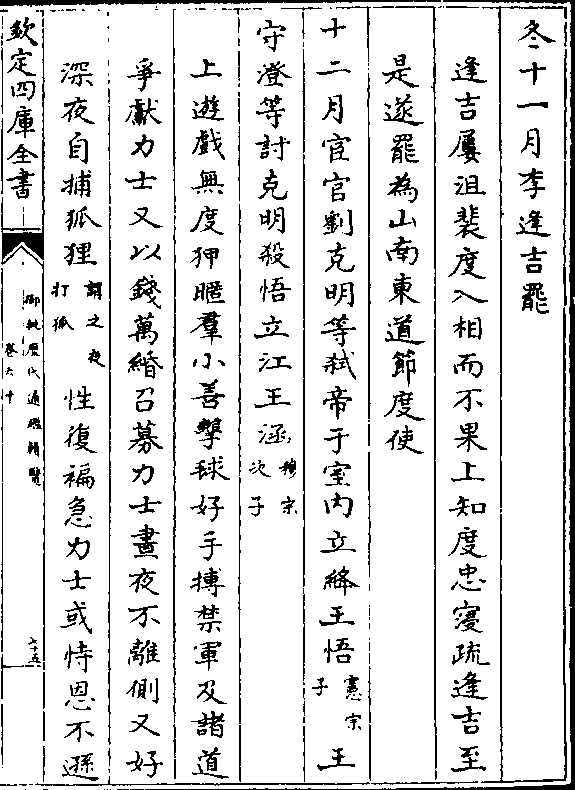 冬十一月李逢吉罷
逢吉屢沮裴度入相而不果上知度忠寖疏逢吉至
是遂罷為山南東道節度使
十二月宦官劉克明等弑帝于室内立絳王悟憲宗子王
守澄等討克明殺悟立江王涵穆宗次子
上遊戲無度狎暱羣小善擊毬好手搏禁軍及諸道
爭獻力士又以錢萬緡召募力士晝夜不離側又好
深夜自捕狐狸謂之夜打狐性復褊急力士或恃恩不遜
欽定四庫全書
御批歷代通鑑輯覽
卷六十
六十五